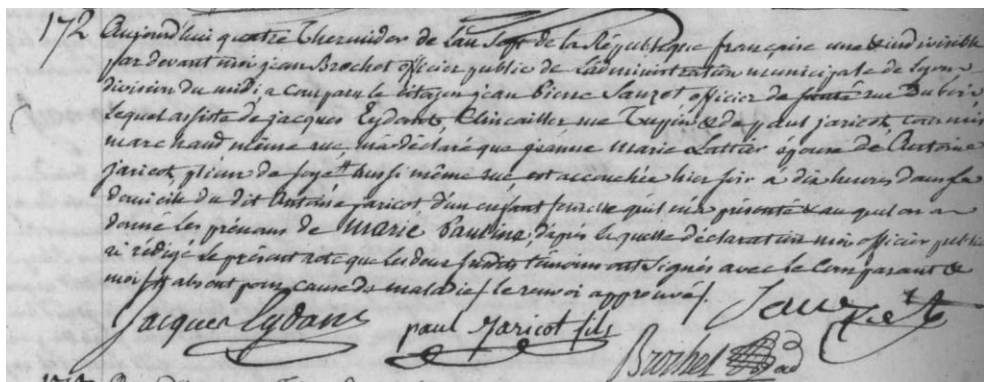 172 Aujourd'hui quatre Thermidor de L'an Sept de la République française une & indivisible
par devant moi jean Brochet officier public de L'administration municipale de Lyon
division du midi a comparu le citoyen jean Pierre Sauzet officier de santé rue Dubois
lequel assisté de jacques Eydant Clincailler rue Tupin & de paul jaricot commis
marchand même rue, m'a déclaré que jeanne Marie Lattier épouse de Antoine
jaricot, plieur de soye aussi même rue est accouchée hier soir à dix heures dans le
domicile du dit Antoine jaricot d'un enfant femelle qu'il m'a présenté & auquel on a
donné les prénoms de Marie Pauline, d'après laquelle déclaration moi officier public
ai rédigé le présent acte que les deux susdits témoins ont signés avec le comparant &
moi absent pour cause de maladie / le renvoi approuvé /.
Jacques Eydant paul Jaricot fils Sauzet
Brochet
172